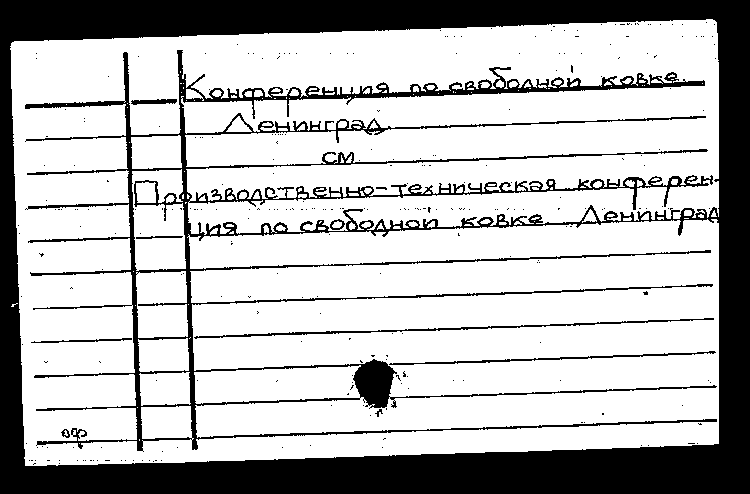 Конференция по свободной ковке.
Ленинград
см
Производственно-техническая конферен-
ция по свободной ковке Ленинград